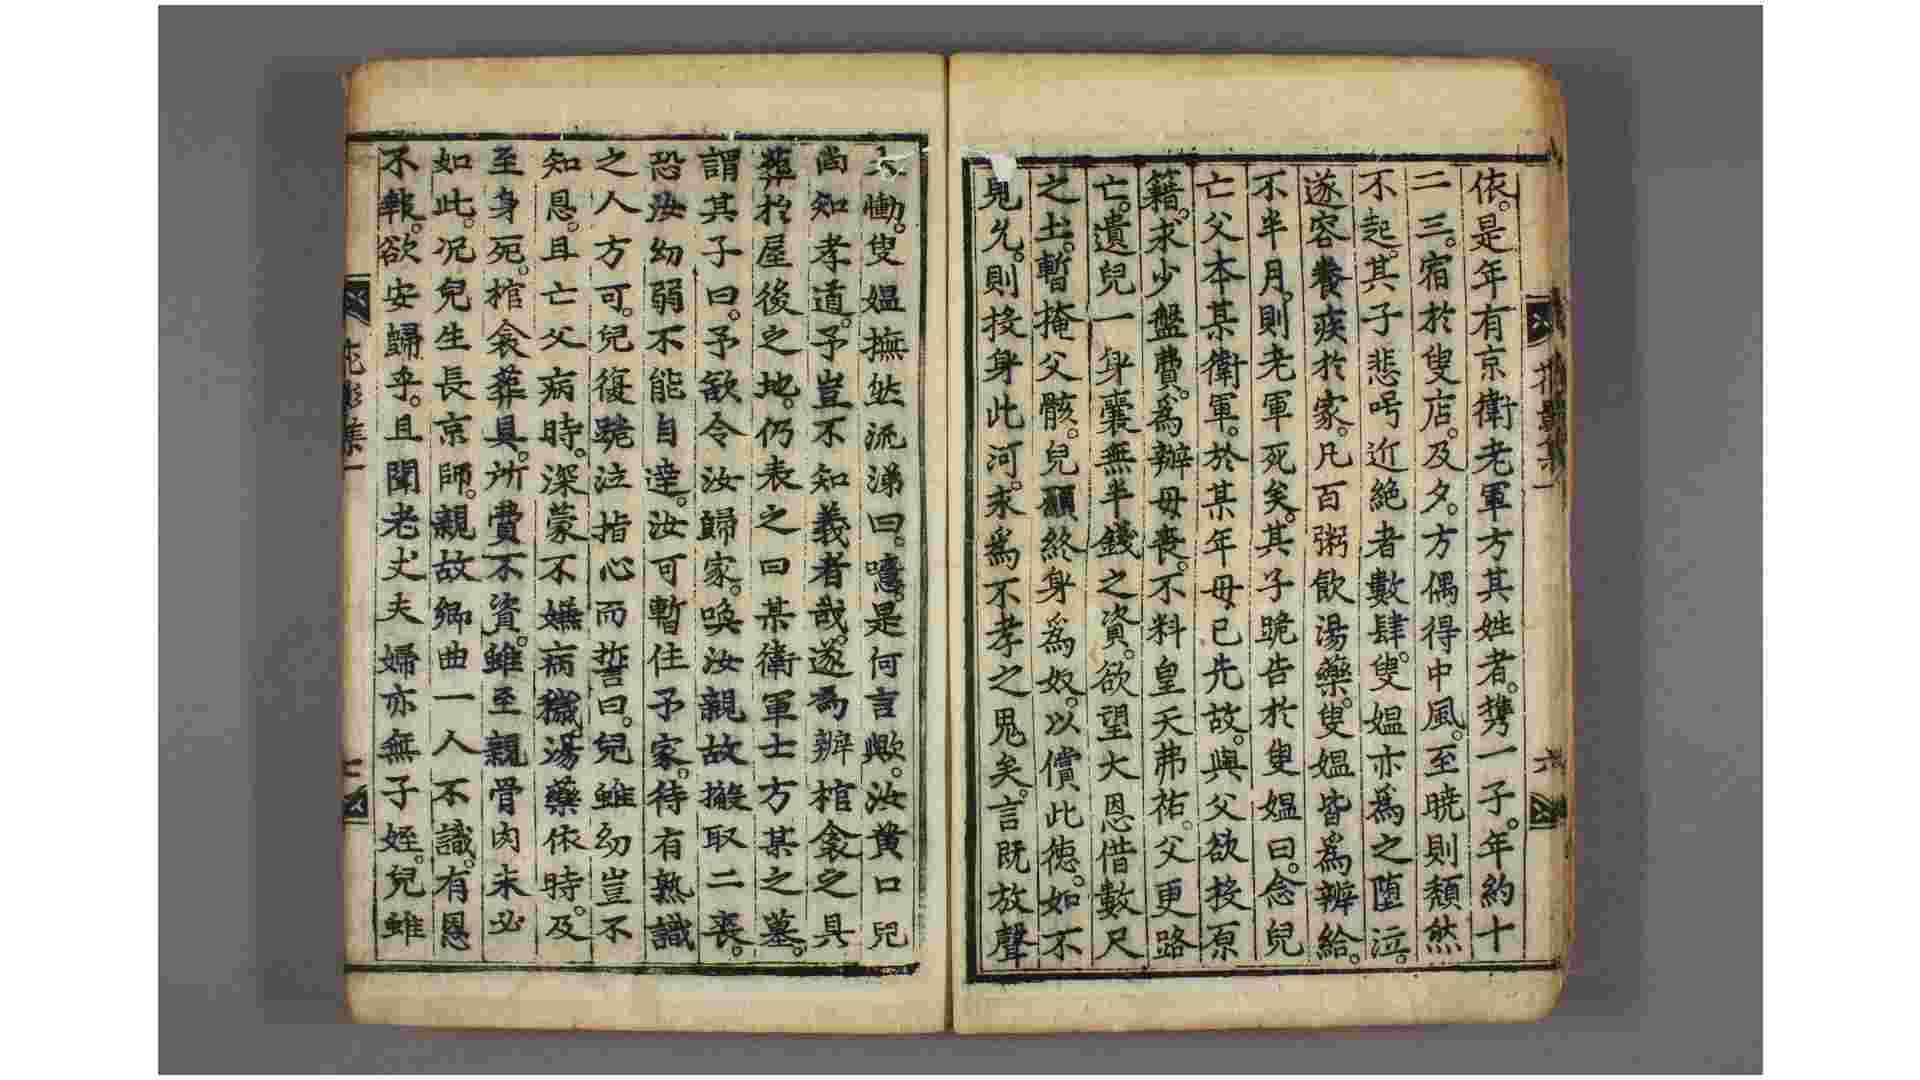 依。是年有京衛老軍方其姓者。携一子。年約十
二三。宿於叟店。及夕。方偶得中風。至曉則頹然
不起。其子悲号近絶者數肆。叟媼亦爲之堕泣。
遂容養疾於家。凡百粥飮湯藥。叟媼皆爲辦給。
不半月。則老軍死矣。其子跪告於叟媼曰。念兒
亡父本某衛軍。於某年母已先故。與父欲投原
籍。求少盤費。爲辦母喪。不料皇天弗祐。父更路
亡。遺兒一身。囊無半錢之資。欲望大恩借數尺
之土。暫掩父骸。兒願終身爲奴。以償此徳。如不
見允。則投身此河。求爲不孝之鬼矣。言既放聲
慟。叟媼撫愁流涕曰。噫。是何言歟。汝黄口兒
尚知孝道。予豈不知義者哉。遂爲辦棺衾之具
葬於屋後之地。仍表之曰某衛軍士方某之墓。
謂其子曰。予欲令汝歸家。喚汝親故搬取二喪。
恐汝幼弱不能自達。汝可暫住予家。待有熟識
之人方可。兒復跪泣指心而誓曰。兒雖幼豈不
知恩。且亡父病時。深蒙不嫌病穢。湯藥依時。及
至身死。棺衾葬具。所費不資。雖至親骨肉未必
如此。况兒生長京師。親故鄉曲一人不識。有恩
不報。欲安歸乎。且聞老丈夫婦亦無子姪。兒雖